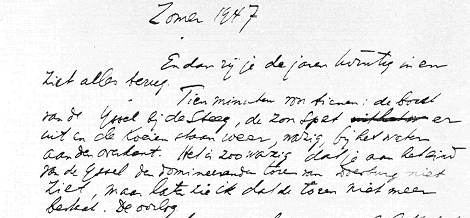 Zomer 1947
En dan zij je de jaren twintig in en
ziet alles terug.
Tien minuten voor tienen: de boot
van de IJssel bij de Steeg, de zon spat er
uit in de koeien staan weer, wazig, bij het water
aan den overkant. Het is zoo wazig dat je aan het eind
van de IJssel den domineerende toren van Doesburg niet
ziet, maar later zie ik dat de toren niet meer
bestaat. De oorlog